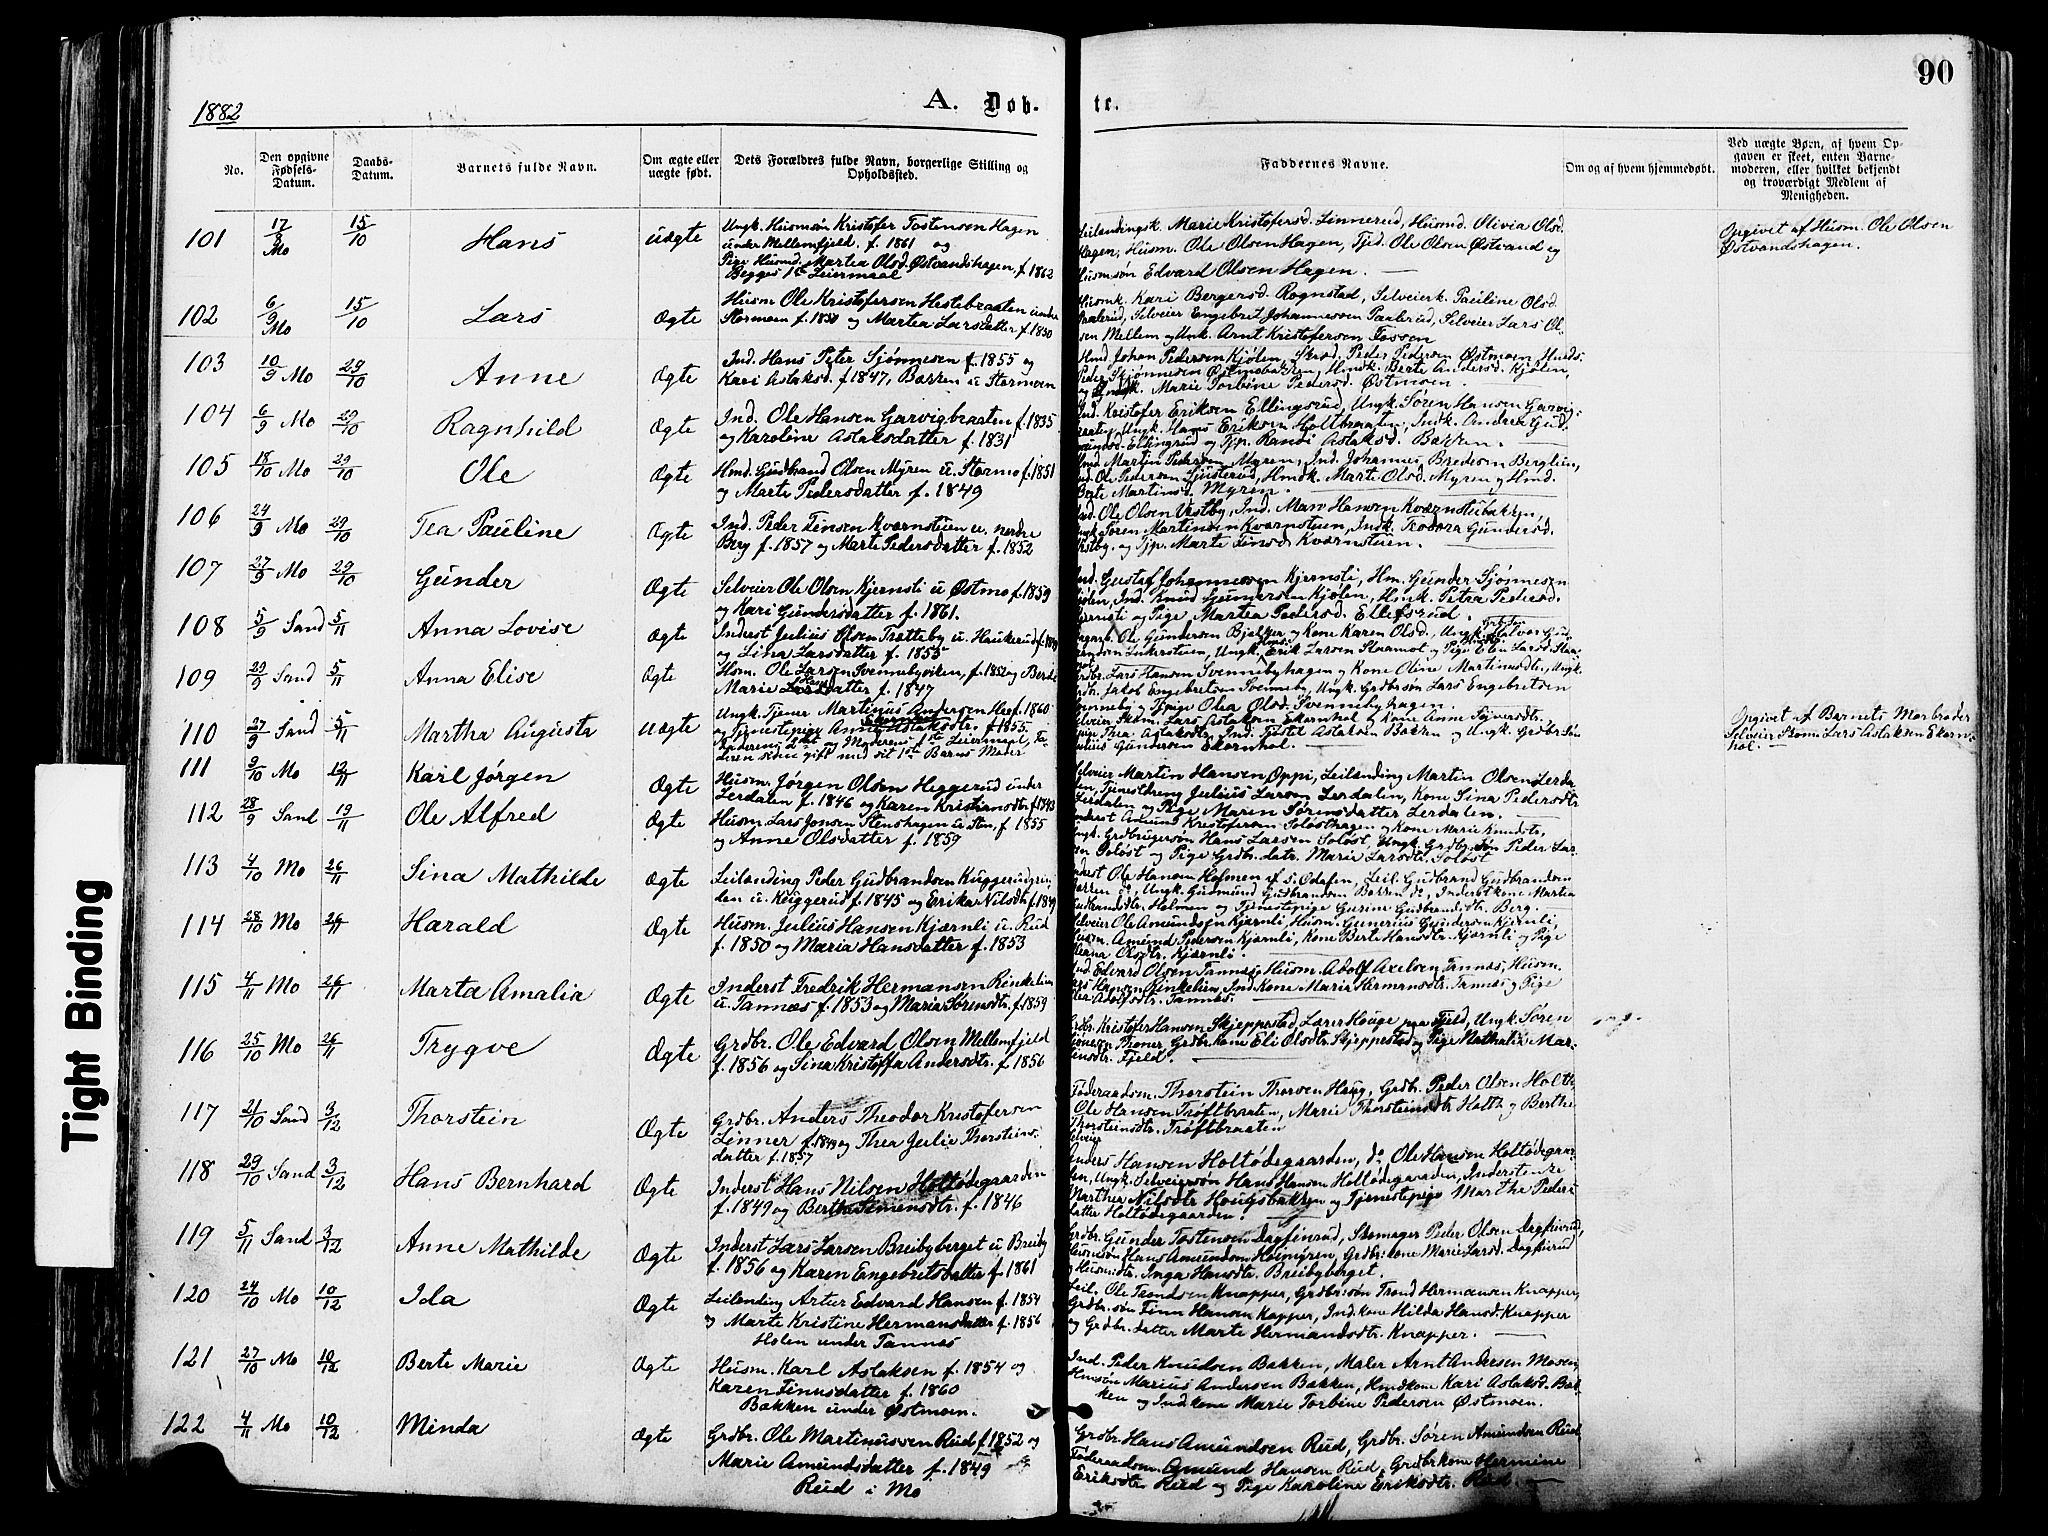 90
1882 A. Døb- te.
No. Den opgivne Fødsels-Datum. Daabs-Datum. Barnets fulde Navn. Om ægte eller uægte født. Dets Forældres fulde Navn, borgerlige Stilling og Opholdssted. Faddernes Navne. Om og af hvem hjemmedøbt. Ved uægte Børn, af hvem Opgaven er skeet, enten Barnemoderen, eller hvilket bekjendt og troværdigt Medlem af Menigheden.
101 17/8 Mo 15/10 Hans uægte
Ungk. Husmsøn Kristofer Tostensen Hagen
under Mellemfjeld. f. 1861 og
Pige Husmd. Martea Olsd. Østvandshagen, f. 1862
Begges 1ste Leiermaal
Marie Kristofersd. Linnerud, Husmd. Olivia Olsd.
Hagen, Husm. Ole Olsen Hagen, Tjd. Ole Olsen Østvand og
Husmsøn Edvard Olsen Hagen.
Opgivet af Husm. Ole Olsen
Østvandshagen.
102 6/9 Mo 15/10 Lars Ægte
Husm Ole Kristofersen Hestebraaten under
Stormoen f. 1850 og Martea Larsdatter f. 1850
Husmk. Kari Bergersd. Rognstad, Selveierk. Pauline Olsd.
Paalerud, Selveier Engebret Johannessen Paalerud, Selveier Lars Ol-
sen Mellem og Ungk. Arnt Kristofersen Fossen
103 10/9 Mo 29/10 Anne Ægte
Ind. Hans Peter Sjønnesen f. 1855 og
Kari Aslaksd. f 1847, Bakken u Stormoen
Hmd Johan Pedersen Kjølen, Peder Pedersen Østmoen,
Peder Sjønnesen Østmobakken, Hmdk. Berte Andersd. Kjølen,
Marie Torbine Pedersd. Østmoen.
104 6/9 Mo 29/10 Ragnhild Ægte
Ind. Ole Hansen Garvigbraaten f. 1835
og Karoline Aslaksdatter f. 1831
Ind. Kristofer Eriksen Ellingsrud, Ungk. Søren Hansen Garvig-
braaten, Ungk. Hans Eriksen Holtbraaten, Indk. Andrea Gud-
Ellingrud og Tjp. Randi Aslaksd. Bakken.
105 18/10 Mo 29/10 Ole Ægte
Hmd. Gudbrand Olsen Myren u. Stormo f. 1851
og Marte Pedersdatter f. 1849
Hmd Martin Pedersen Myren, Ind. Johannes Bredesen Berglien,
Ind. Ole Pedersen Hmdk. Marte Olsd. Myren og Hmd.
Berte Martinsd. Myren.
106 24/9 Mo 29/10 Tea Pauline Ægte
Ind. Peder Finsen Kværnstuen u. nerdre
Berg f. 1857 og Marte Pedersdatter f. 1852
Ind. Ole Olsen Vestby, Ind. Hansen Kværnstubakken,
Ungk. Søren Martinsen Kværnstuen, Indk. Teodora Gundersd.
Vestby. og Tjp. Marte Finsd. Kværnstuen.
107 27/9 Mo 29/10 Gunder Ægte
Selveier Ole Olsen Kjernsli u Østmo f. 1859
og Kari Gundersdatter f. 1861.
Ind. Gustaf Johannessen Kjernsli, Hm. Gunder Sjønnesen
Kjølen, Ind. Knud Gundersen Kjølen, Hmk. Petra Pedersd.
Kjernsli og Pige Martea Pedersd. Ellefsrud.
108 5/9 Sand 5/11 Anna Lovise Ægte
Inderst Julius Olsen Tratteby u. Haukerud
og Lina Larsdatter f. 1855
Ole Gundersen Bjølker og Kone Karen Olsd., Ungk. Halvor Gun-
Ungk. Erik Larsen og Pige Elen Larsd.
109 29/9 Sand 5/11 Anna Elise Ægte
Hsm. Ole Larsen Svennebyviken, f. 1852 og
Marie datter f. 1847
Grdbr. Lars Hansen Svennebyhagen og Kone Oline Martinusdtr., Ungk.
Jakob Engebretsen Svenneby, Ungk. Grdbrsøn Lars Engebretsen
Svenneby og Pige Olea Olsd. Svennebyhagen.
110 27/9 Sand 5/11 Martha Augusta uægte
Ungk. Tjener Martinus Andersen Hee f. 1860
og Tjenestepige Anne Aslaksdtr. f 1855.
Faderens 2det og Moderens 1ste Leiermaal, Fa-
deren siden gift med sit 1ste Barns Moder
Selveier Skom. Lars Aslaksen Ekornhol og Kone Anne
Pige Thea Aslaksdtr. Ind. Aslaksen Bakken og Ungk. Grdbr.Søn
Julius Gundersen Ekornhol.
Opgivet af Barnets Morbroder
Selveier Skom. Lars Aslaksen Ekorn-
hol.
111 9/10 Mo 12/11 Karl Jørgen Ægte
Husm. Jørgen Olsen Heggerud under
Lerdalen f. 1846 og Karen Kristiansdtr f. 1843
Selveier Martin Hansen Oppi, Leilending Martin Olsen Lerda-
len, Tjenestdreng Julius Larsen Lerdalen, Kone Sina Pedersdtr
Lerdalen og Pige Maren Sørensdatter Lerdalen.
112 28/9 Sand 19/11 Ole Alfred Ægte
Husm. Lars Jonsen Stenshagen u. Sten, f. 1855
og Anne Olsdatter f. 1859
Inderst Amund Kristofersen Soløsthagen og Kone Marie Knudsdtr.
Ungk. Grdbrugersøn Hans Larsen Soløst, Ungk. Grdbr. søn Peder Lar-
sen Soløst og Pige Grdbr. datr. Marie Larsdtr. Soløst
113 4/10 Mo 26/11 Sina Mathilde Ægte
Leilending Peder Gudbrandsen Kuggerudgren-
den u. Kuggerud f. 1845 og Erika Nilsdtr. f. 1849
Inderst Ole Hansen Holmen af S. Odalen, Leil. Gudbrand Gudbrandsen
Barren do, Ungk. Gudmund Gudbrandsen Barren do, Inderstkone Martia
Gudbrandsdtr. Holmen og Tjenestepige Gurine Gudbrandsdtr. Berg.
114 28/10 Mo 26/11 Harald Ægte
Husm. Julius Hansen Kjærnli u. Rud
f. 1850 og Maria Hansdatter f. 1853
Selveier Ole Amundsen Kjærnli, Husm. Gunerius Gundersen Kjærnli,
Husm. Amund Pedersen Kjærnli, Kone Berte Hansdtr. Kjærnli og Pige
Olsdtr. Kjærnli.
115 4/11 Mo 26/11 Marta Amalia Ægte
Inderst Fredrik Hermansen Rinkelien
u. Tannæs f. 1853 og Maria Sørensdtr. f. 1859
Ind. Edvard Olsen Tannæs, Husm. Adolf Axelsen Tannæs, Husm.
Lars Hansen Rinkelien, Ind. Kone Maria Hermansdtr. Tannæs og Pige
Adolfsdtr. Tannæs.
116 25/10 Mo 26/11 Trygve Ægte
Grdbr. Ole Edvard Olsen Mellemfjeld
f. 1856 og Sina Kristoffa Andersdtr. f. 1856
Grdbr. Kristofer Hansen Skjeppestad, Lærer Houge paa Fjeld, Ungk. Søren
Tjener Grdbr.kone Eli Olsdtr. Skjeppestad og Pige Nathalie Mar-
tinsdtr. Fjeld.
117 21/10 Sand 3/12 Thorstein Ægte
Grdbr. Anders Theodor Kristofersen
Linner f. 1849 og Thea Julie Thorsteins-
datter f. 1857
Føderaadsm. Thorstein Thorsen Haug, Grdbr. Peder Olsen Holth,
Ole Hansen Trøftbraaten, Marie Thorsteinsdtr Holth og Berthe
Thorsteinsdtr. Trøftbraaten
118 29/10 Sand 3/12 Hans Bernhard Ægte
Inderst Hans Nilsen Holtødegaarden
f. 1849 og Berthe Simensdtr. f. 1846
Selveier
Anders Hansen Holtødegaarden, do. Ole Hansen Holtødegaar-
den, Ungk. Selveiersøn Hans Hansen Holtødegaarden, Inderstenke
Marthea Nilsdtr Hougsbakken og Tjenestepige Marthe Peders-
datter Holtødegaarden.
119 5/11 Sand 3/12 Anne Mathilde Ægte
Inderst Lars Larsen Breibyberget u Breiby
f. 1856 og Karen Engebretsdatter f. 1861
Grdbr. Gunder Tostensen Dagfinrud, Skomager Peder Olsen Dagfinrud,
Husmsøn Hans Amundsen Holmyren, Grdbr. kone Marie Larsd. Dagfinrud
og Husmdtr. Inga Hansdtr. Breibyberget.
120 24/10 Mo 10/12 Ida Ægte
Leilending Artur Edvard Hansen f. 1854
og Marte Kristine Hermansdatter f. 1856
Holen under Tannæs
Leil. Ole Trondsen Knapper, Grdbr.søn Trond Hermansen Knapper,
Grdbr.søn Finn Hansen Kapper, Ind.kone Hilda Hansd. Knapper
og Grdbr. datter Marte Hermandsdtr. Knapper.
121 27/10 Mo 10/12 Berte Marie Ægte
Husm. Karl Aslaksen f. 1854 og
Karen Finusdatter f. 1860
Bakken under Østmoen.
Ind. Peder Knudsen Bakken, Maler Arnt Andersen Mosen,
Hmsøn Marius Andersen Bakken, Hmdkone Kari Aslaksd. Bak-
ken og Indkone Marie Torbine Pedersen Østmoen.
122 4/11 Mo 10/12 Minda Ægte
Grdbr. Ole Martinussen Rud f. 1852 og
Marie Amundsdatter f. 1849
Rud i Mo
Grdbr. Hans Amundsen Rud, Grdbr. Søren Amundsen Rud
Føderaadsm. Amund Hansen Rud, Grdbrkone Hermine
Eriksdtr. Rud og Pige Karoline Eriksdtr. Rud.
Tight Binding